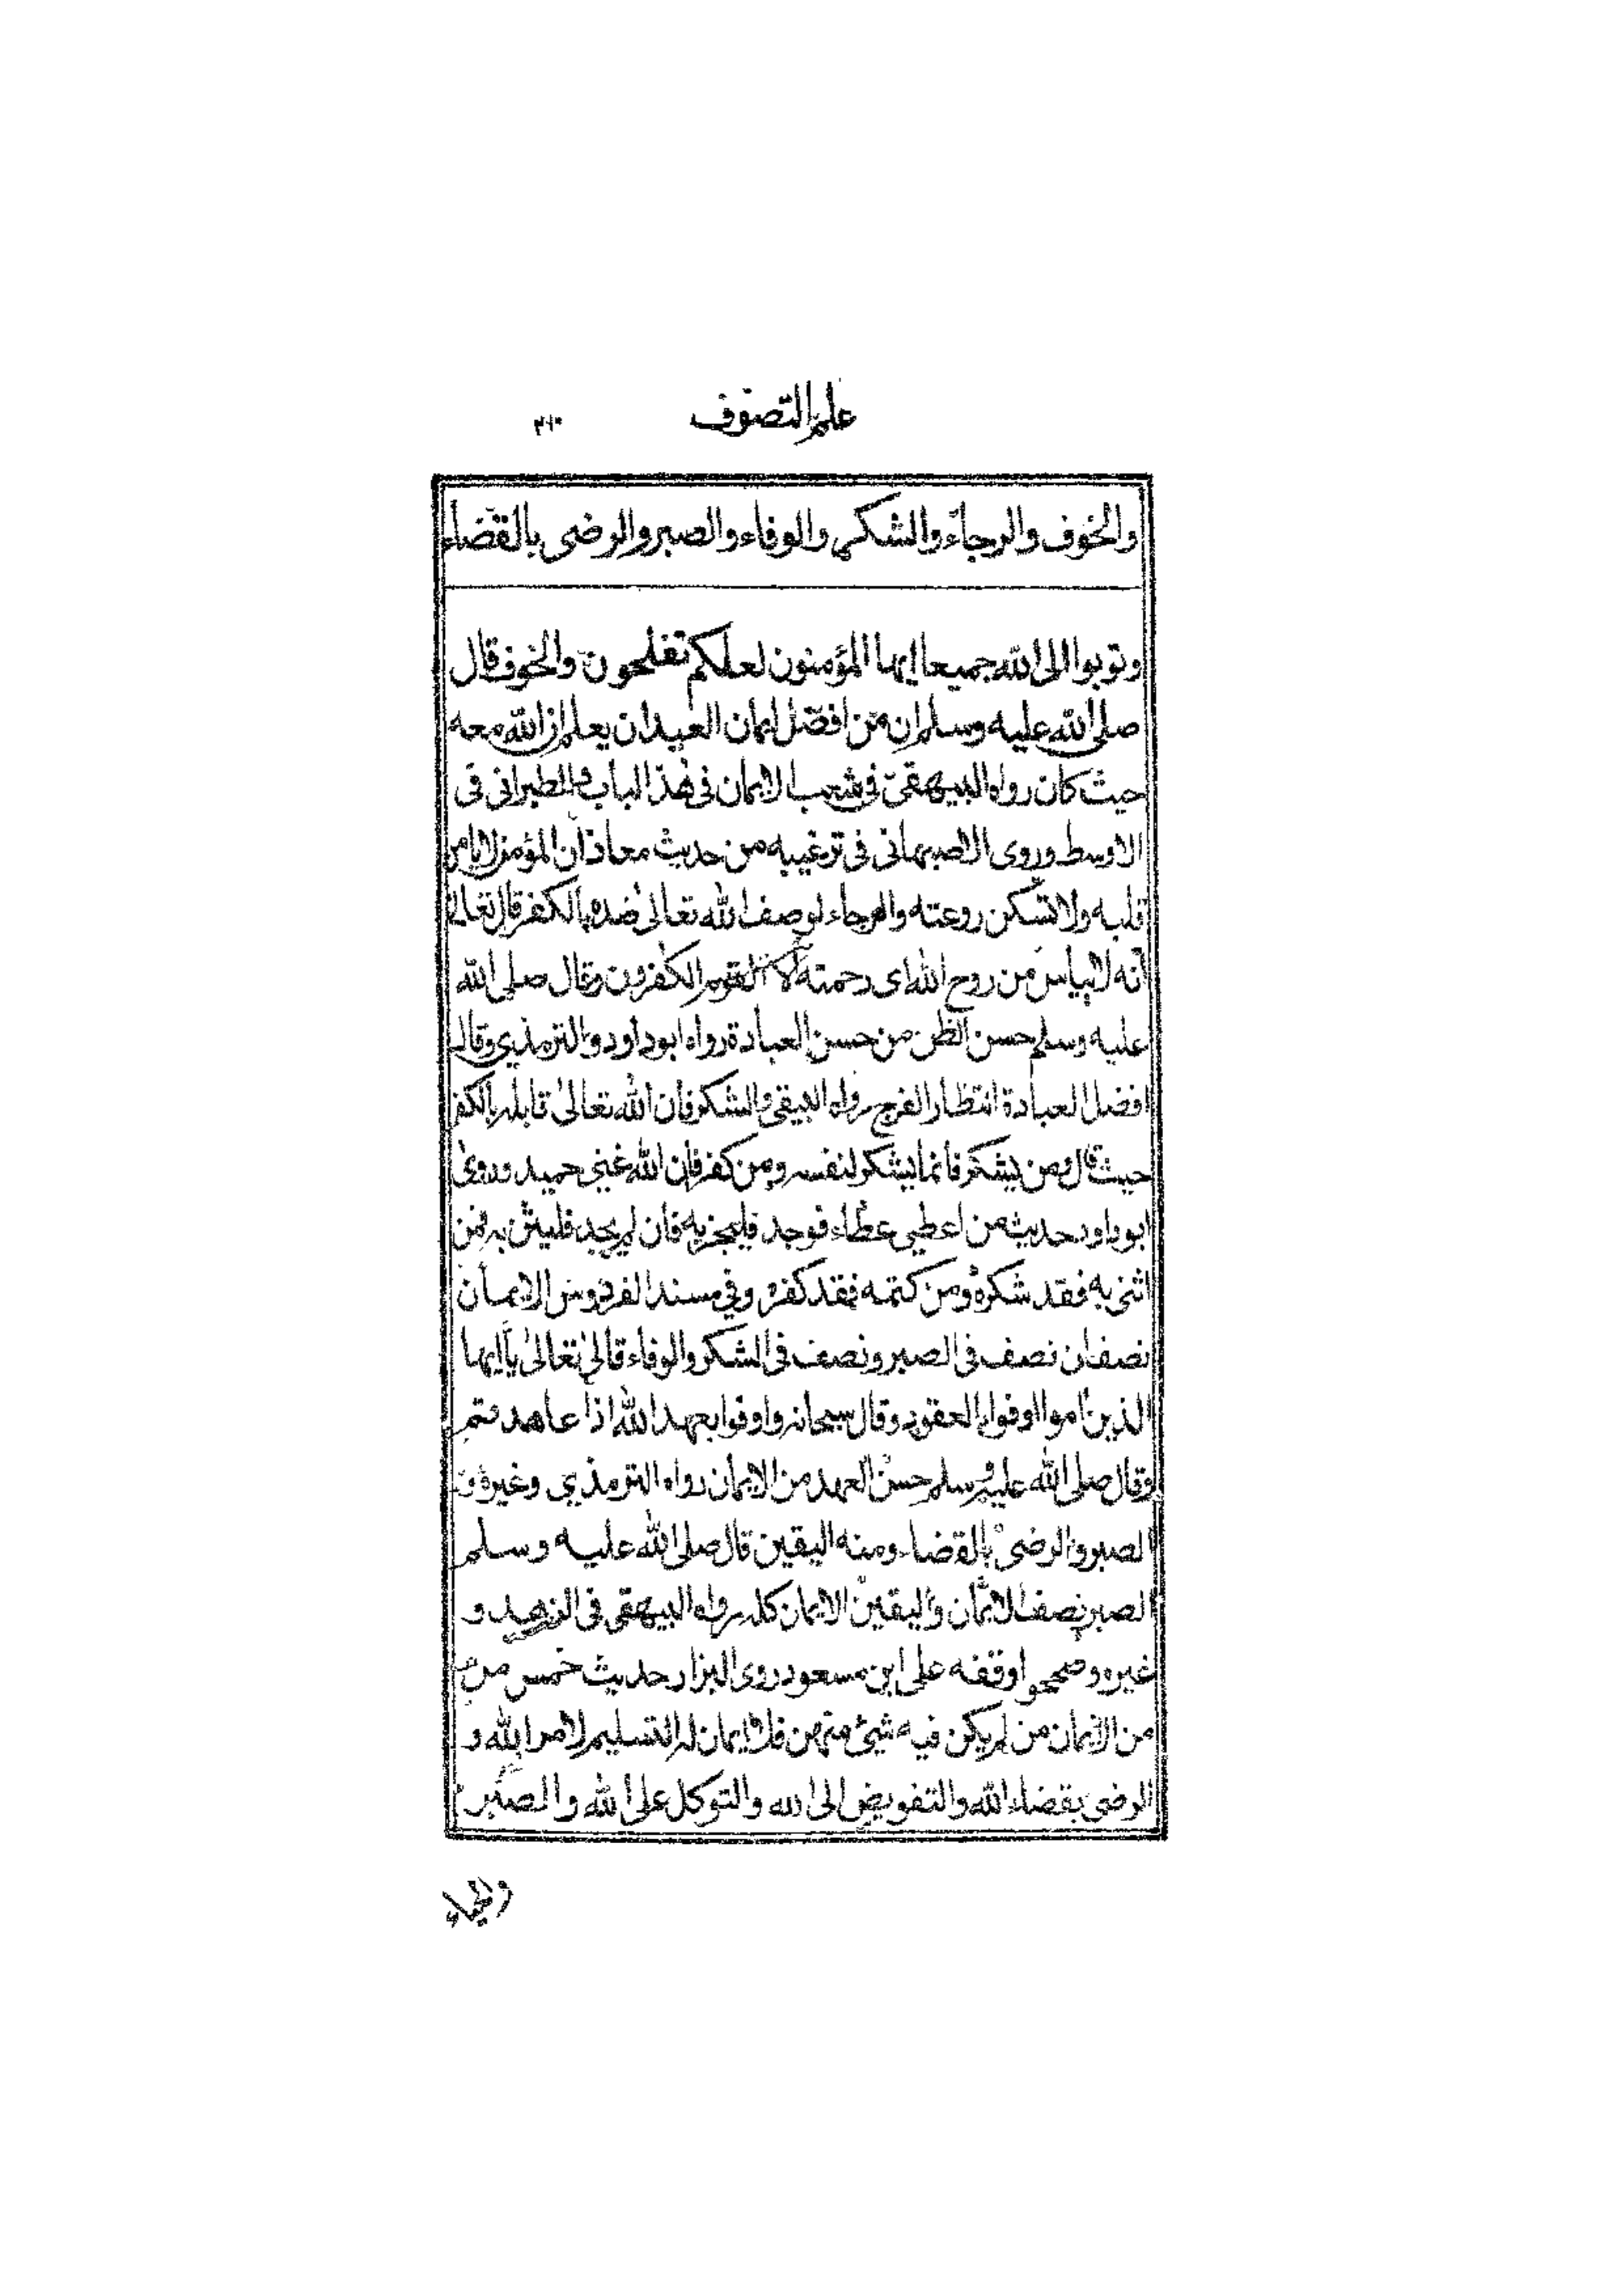 علم التصوف ٢٦٠
والخوف والرجاء والشكر والوفاء والصبر والرضى بالقضاء
وتوبوا الى الله جميعا ايها المؤمنون لعلكم تفلحون والخوف قال
صلى الله عليه وسلم ان من افضل ايمان العبد ان يعلم ان الله معه
حيث كان رواه البيهقي في شعب الايمان في هذا الباب والطبراني في
الاوسط وروى الاصبهاني في ترغيبه من حديث معاذ ان المؤمن لا يامن
قلبه ولا تسكن روعته والرجاء لوصف الله تعالى ضده بالكفر قال تعالى
انه لا ييأس من روح الله اى رحمته الا القوم الكفرون وقال صلى الله
عليه وسلم حسن الظن من حسن العبادة رواه ابو داود والترمذي وقال
افضل العبادة انتظار الفرج رواه البيقى والشكر فان الله تعالى قابله بالكفر
حيث قال ومن يشكر فانما يشكر لنفسه ومن كفر فان الله غني حميد وروى
ابو داود حديث من اعطي عطاء فوجد فليجز به فان لم يجد فليثن به فمن
اثنى به فقد شكره ومن كتمه فقد كفره وفي مسند الفردوس الايمان
نصفان نصف في الصبر ونصف في الشكر والوفاء قال تعالى يا ايها
الذين امنوا اوفوا بالعقود وقال سبحانه واوفوا بعهد الله اذا عاهدتم
وقال صلى الله عليه وسلم حسن العهد من الايمان رواه الترمذي وغيره و
الصبر والرضى بالقضاء ومنه اليقين قال صلى الله عليه وسلم
الصبر نصف الايمان واليقين الايمان كله رواه البيهقى في الزهد و
غيره وصححوا وقفه على ابن مسعود روى البزار حديث خمس من
من الايمان من لم يكن فيه شيئ منهن فلا ايمان له التسليم لامر الله و
الرضى بقضاء الله والتفويض الى الله والتوكل على الله والصبر
والحياء